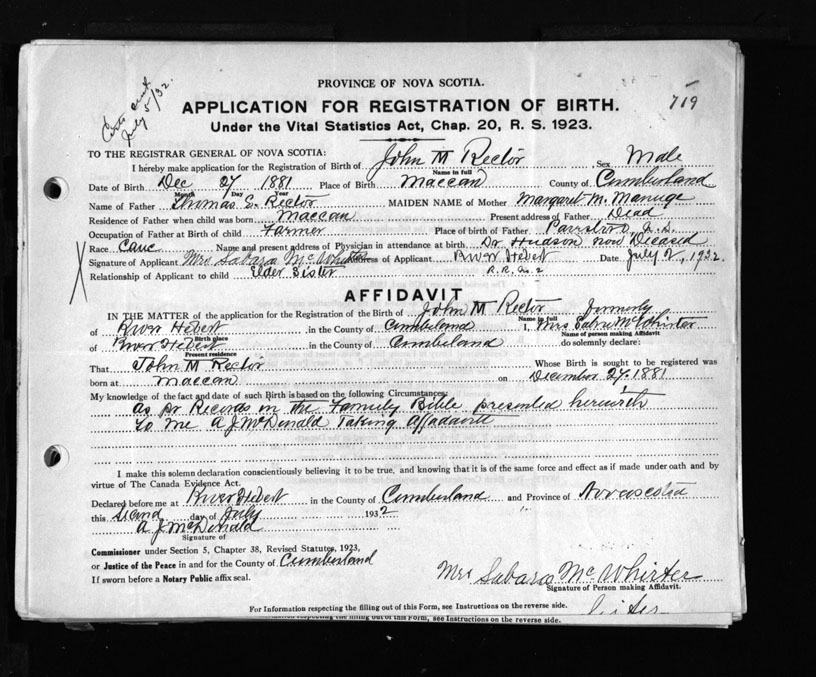 PROVINCE OF NOVA SCOTIA.
719
July 5/32.
APPLICATION FOR REGISTRATION OF BIRTH.
Under the Vital Statistics Act, Chap. 20, R. S. 1923.
TO THE REGISTRAR GENERAL OF NOVA SCOTIA:
I hereby make application for the Registration of Birth of John M Rector Sex Male
Name in full
Date of Birth Dec 27 1881 Place of Birth Maccan County of Cumberland
Month Day Year
Name of Father Thomas S. Rector MAIDEN NAME of Mother Margaret M. Manuge
Residence of Father when child was born Maccan Present address of Father Dead
Occupation of Father at Birth of child Farmer Place of birth of Father Parrsboro, N.S.
Race Cauc Name and present address of Physician in attendance at birth Dr Hudson now Diceased
Signature of Applicant Mrs Sabara McWhirter Address of Applicant River Hebert Date July 2, 1932
R.R. No. 2
Relationship of Applicant to child Elder Sister
AFFIDAVIT
IN THE MATTER of the application for the Registration of the Birth of John M Rector formerly
Name in full
of River Hebert in the County of Cumberland I, Mrs McWhirter
Birth place Name of person making Affidavit
of River Hebert in the County of Cumberland do solemnly declare:
Present residence
That John M Rector Whose Birth is sought to be registered was
born at Maccan on December 27. 1881
My knowledge of the fact and date of such Birth is based on the following Circumstances:
as pr Records in the Family Bible presented herewith
to me A J McDonald Taking affadavit
I make this solemn declaration conscientiously believing it to be true, and knowing that it is of the same force and effect as if made under oath and by
virtue of The Canada Evidence Act.
Declared before me at River Hebert in the County of Cumberland and Province of Novascotia
this day of July 1932
A J McDonald
Signature of
Commissioner under Section 5, Chapter 38, Revised Statutes, 1923,
or Justice of the Peace in and for the County of Cumberland
If sworn before a Notary Public affix seal.
Mrs Sabara McWhirter
Signature of Person making Affidavit.
For Information respecting the filling out of this Form, see Instructions on the reverse side.
respecting the filling out of this Form, see Instructions on the reverse side.